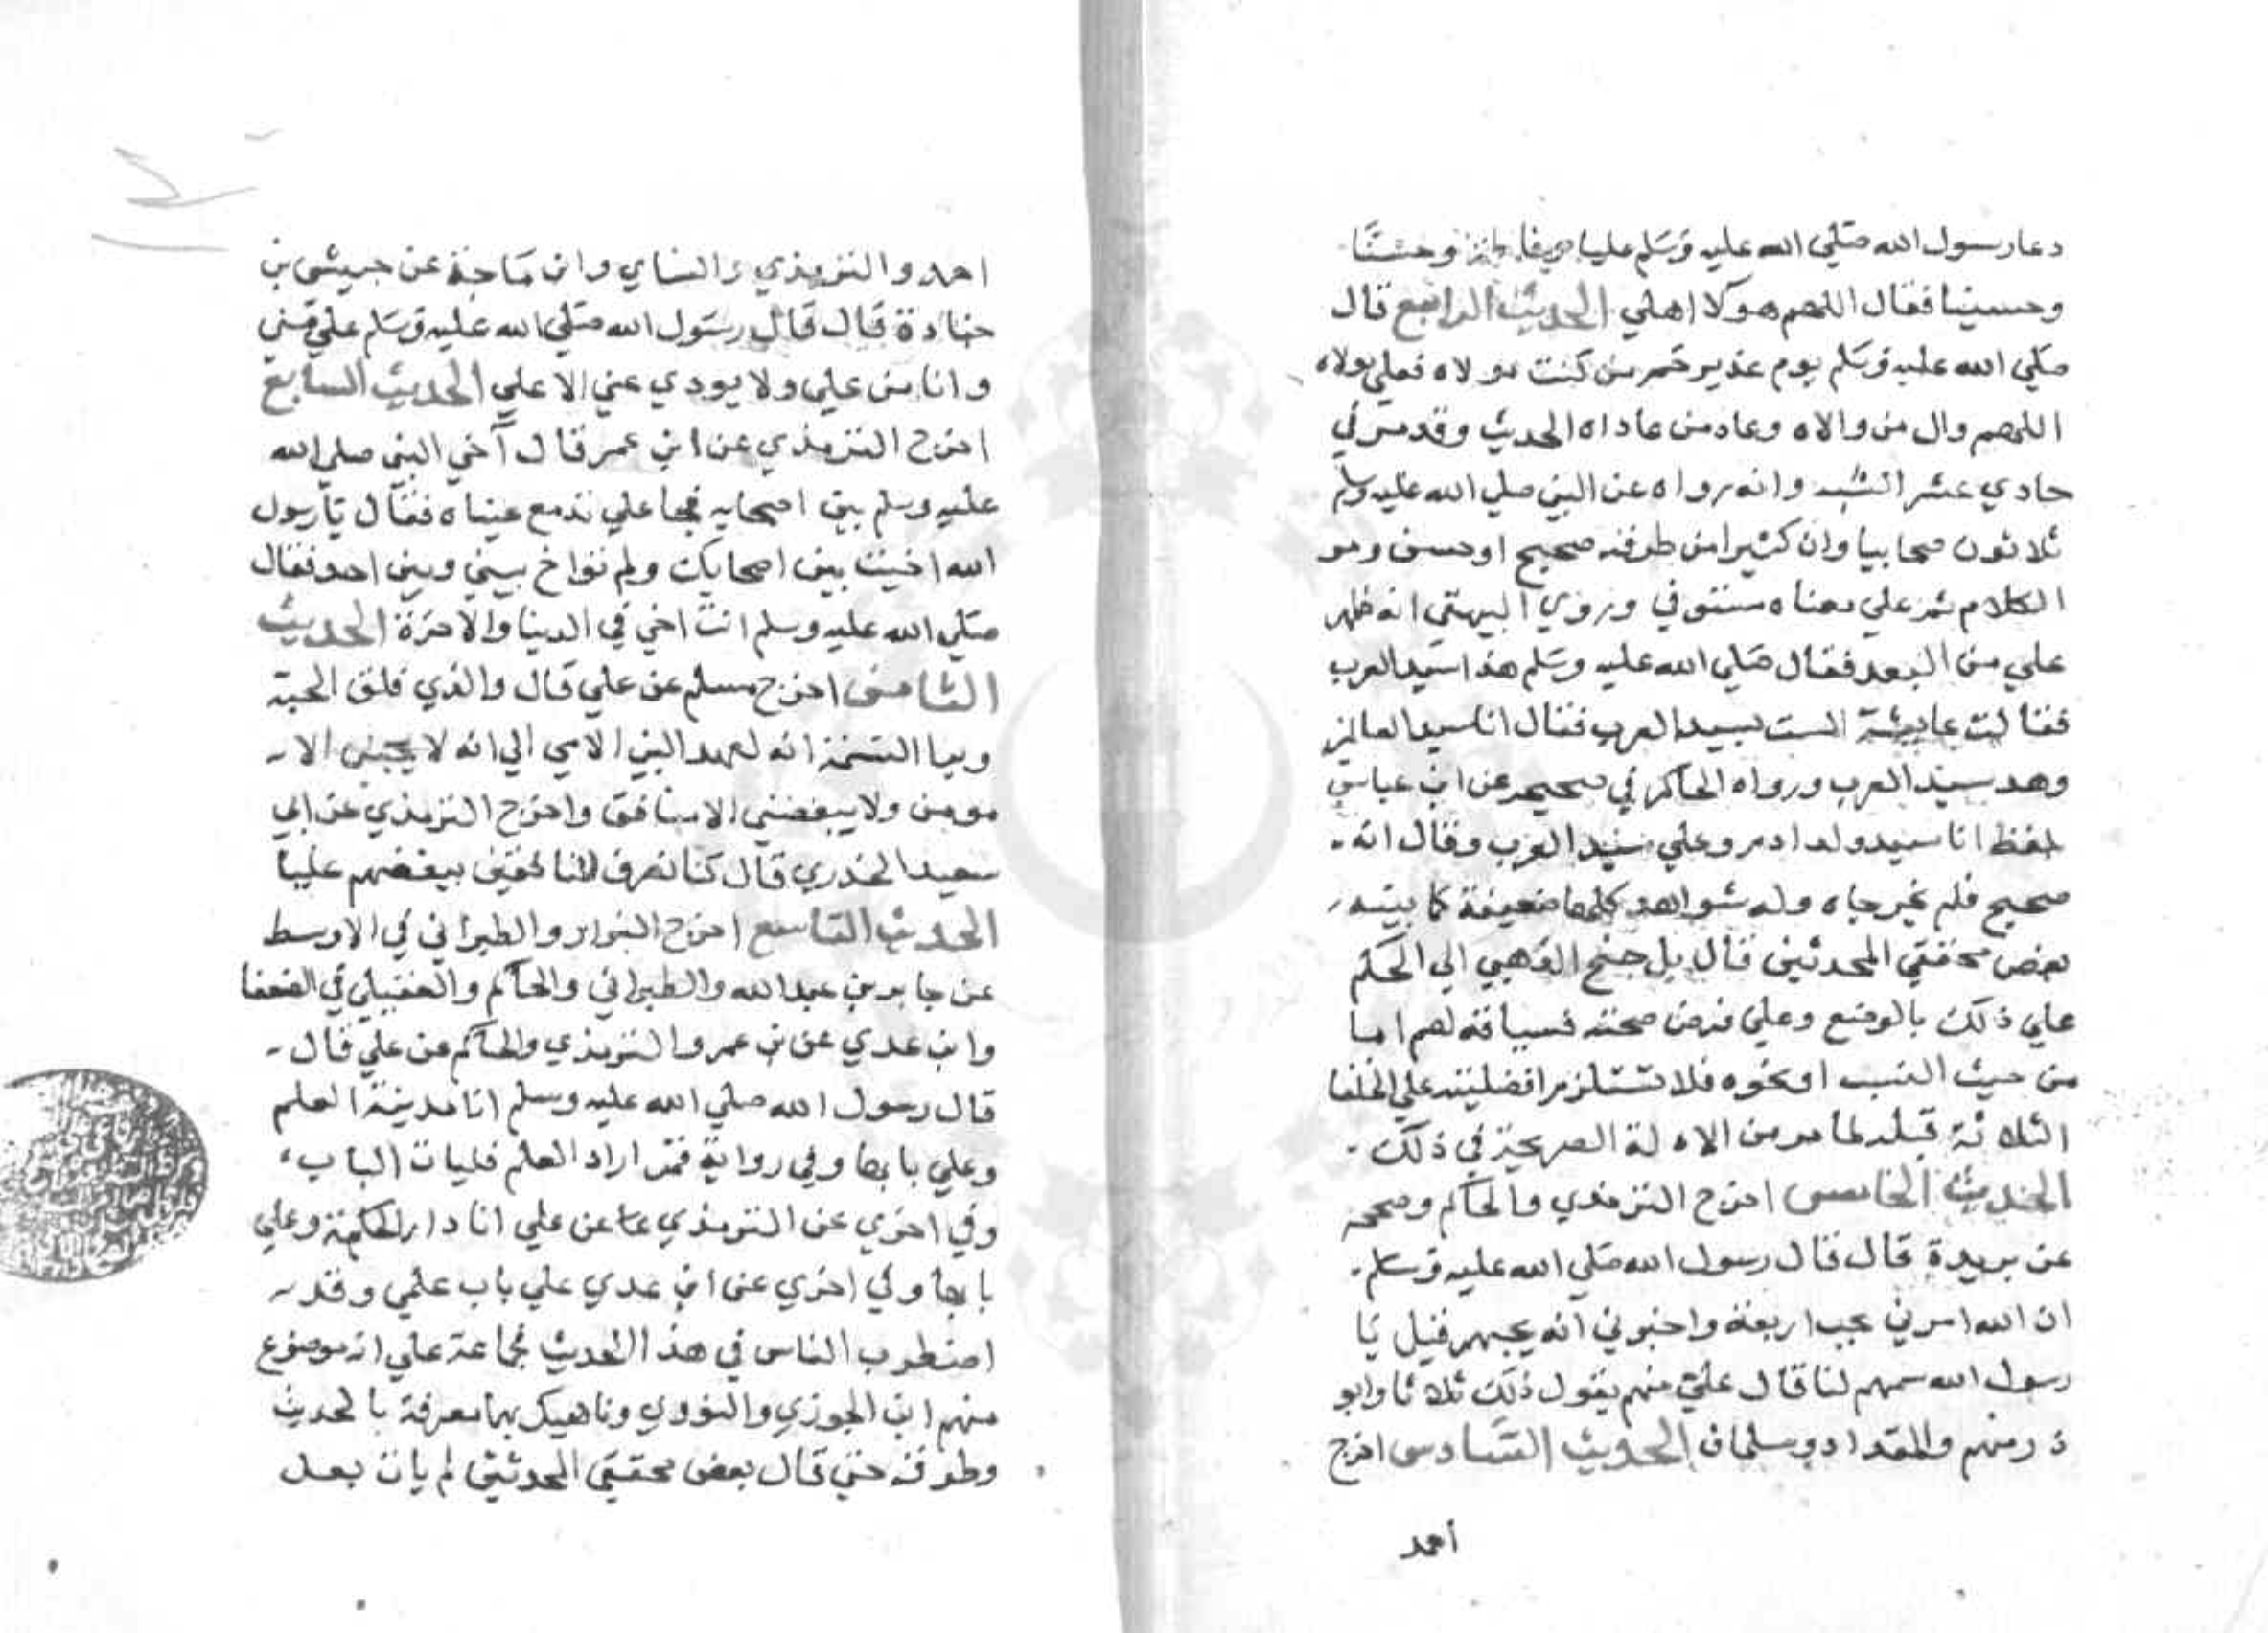 دعا رسول الله صلي الله عليه وسلم عليا وفاطمة وحسنا
وحسينا فقال اللهم هولا اهلي الحديث الرابع قال
صلي الله عليه وسلم يوم غدير خم من كنت مولاه فعلي مولاه
اللهم وال من والاه وعاد من عاداه الحديث وقد مر في
حادي عشر الشبه وانه رواه عن النبي صلي الله عليه وسلم
ثلاثون صحابيا وان كثيرا من طرقه صحيح او حسن ومر
الكلام ثم علي معناه مستوفي وروي البيهقي انه ظهر
علي من البعد فقال صلي الله عليه وسلم هذا سيد العرب
فقالت عايشة الست بسيد العرب فقال انا سيد العالمين
وهد سيد العرب ورواه الحاكم في صحيحه عن ابن عباس
بلفظ انا سيد ولد ادم وعلي سيد العرب وقال انه
صحيح فلم يخرجاه وله شواهد كلها ضعيفة كما بينه
بعض محققي المحدثين قال بل جنح الذهبي الي الحكم
علي ذلك بالوضع وعلي فرض صحته فسيادته لهم اما
من حيث النسب او نحوه فلا تستلزم افضليته علي الخلفا
الثلاثة قبله لما مر من الادلة الصريحة في ذلك
الحديث الخامس اخرج الترمذي والحاكم وصححه
عن بريدة قال قال رسول الله صلي الله عليه وسلم
ان الله امرني بحب اربعة واخبرني انه يحبهم قيل يا
رسول الله سمهم لنا قال علي منهم يقول ذلك ثلاثا وابو
ذر منهم والمقداد وسلمان الحديث السادس اخرج
أحمد
احمد والترمذي والنساي وابن ماجة عن حبيشي بن
جنادة قال قال رسول الله صلي الله عليه وسلم علي مني
وانا من علي ولا يودي عني الا علي الحديث السابع
اخرج الترمذي عن ابن عمر قال آخي النبي صلي الله
عليه وسلم بين اصحابه فجا علي تدمع عيناه فقال يا رسول
الله اخيت بين اصحابك ولم تواخ بيني وبين احد فقال
صلي الله عليه وسلم انت اخي في الدنيا والاخرة الحديث
الثامن اخرج مسلم عن علي قال والذي فلق الحبة
وبرا النسمة انه لعهد النبي الامي الي انه لا يحبني الا
مومن ولا يبغضني الا منافق واخرج الترمذي عن ابي
سعيد الخدري قال كنا نعرف المنافقين ببغضهم عليا
الحديث التاسع اخرج البزار والطبراني في الاوسط
عن جابر بن عبد الله والطبراني والحاكم والعقيلي في الضعفا
وابن عدي عن بن عمر والترمذي والحاكم عن علي قال
قال رسول الله صلي الله عليه وسلم انا مدينة العلم
وعلي بابها وفي رواية فمن اراد العلم فليات الباب
وفي اخري عن الترمذي عن علي انا دار الحكمة وعلي
بابها وفي اخري عن ابن عدي علي باب علمي وقد
اضطرب الناس في هذا الحديث فجماعة علي انه موضوع
منهم ابن الجوزي والنووي وناهيك بهما معرفة بالحديث
وطرقه حتي قال بعض محققي المحدثين لم يات بعد